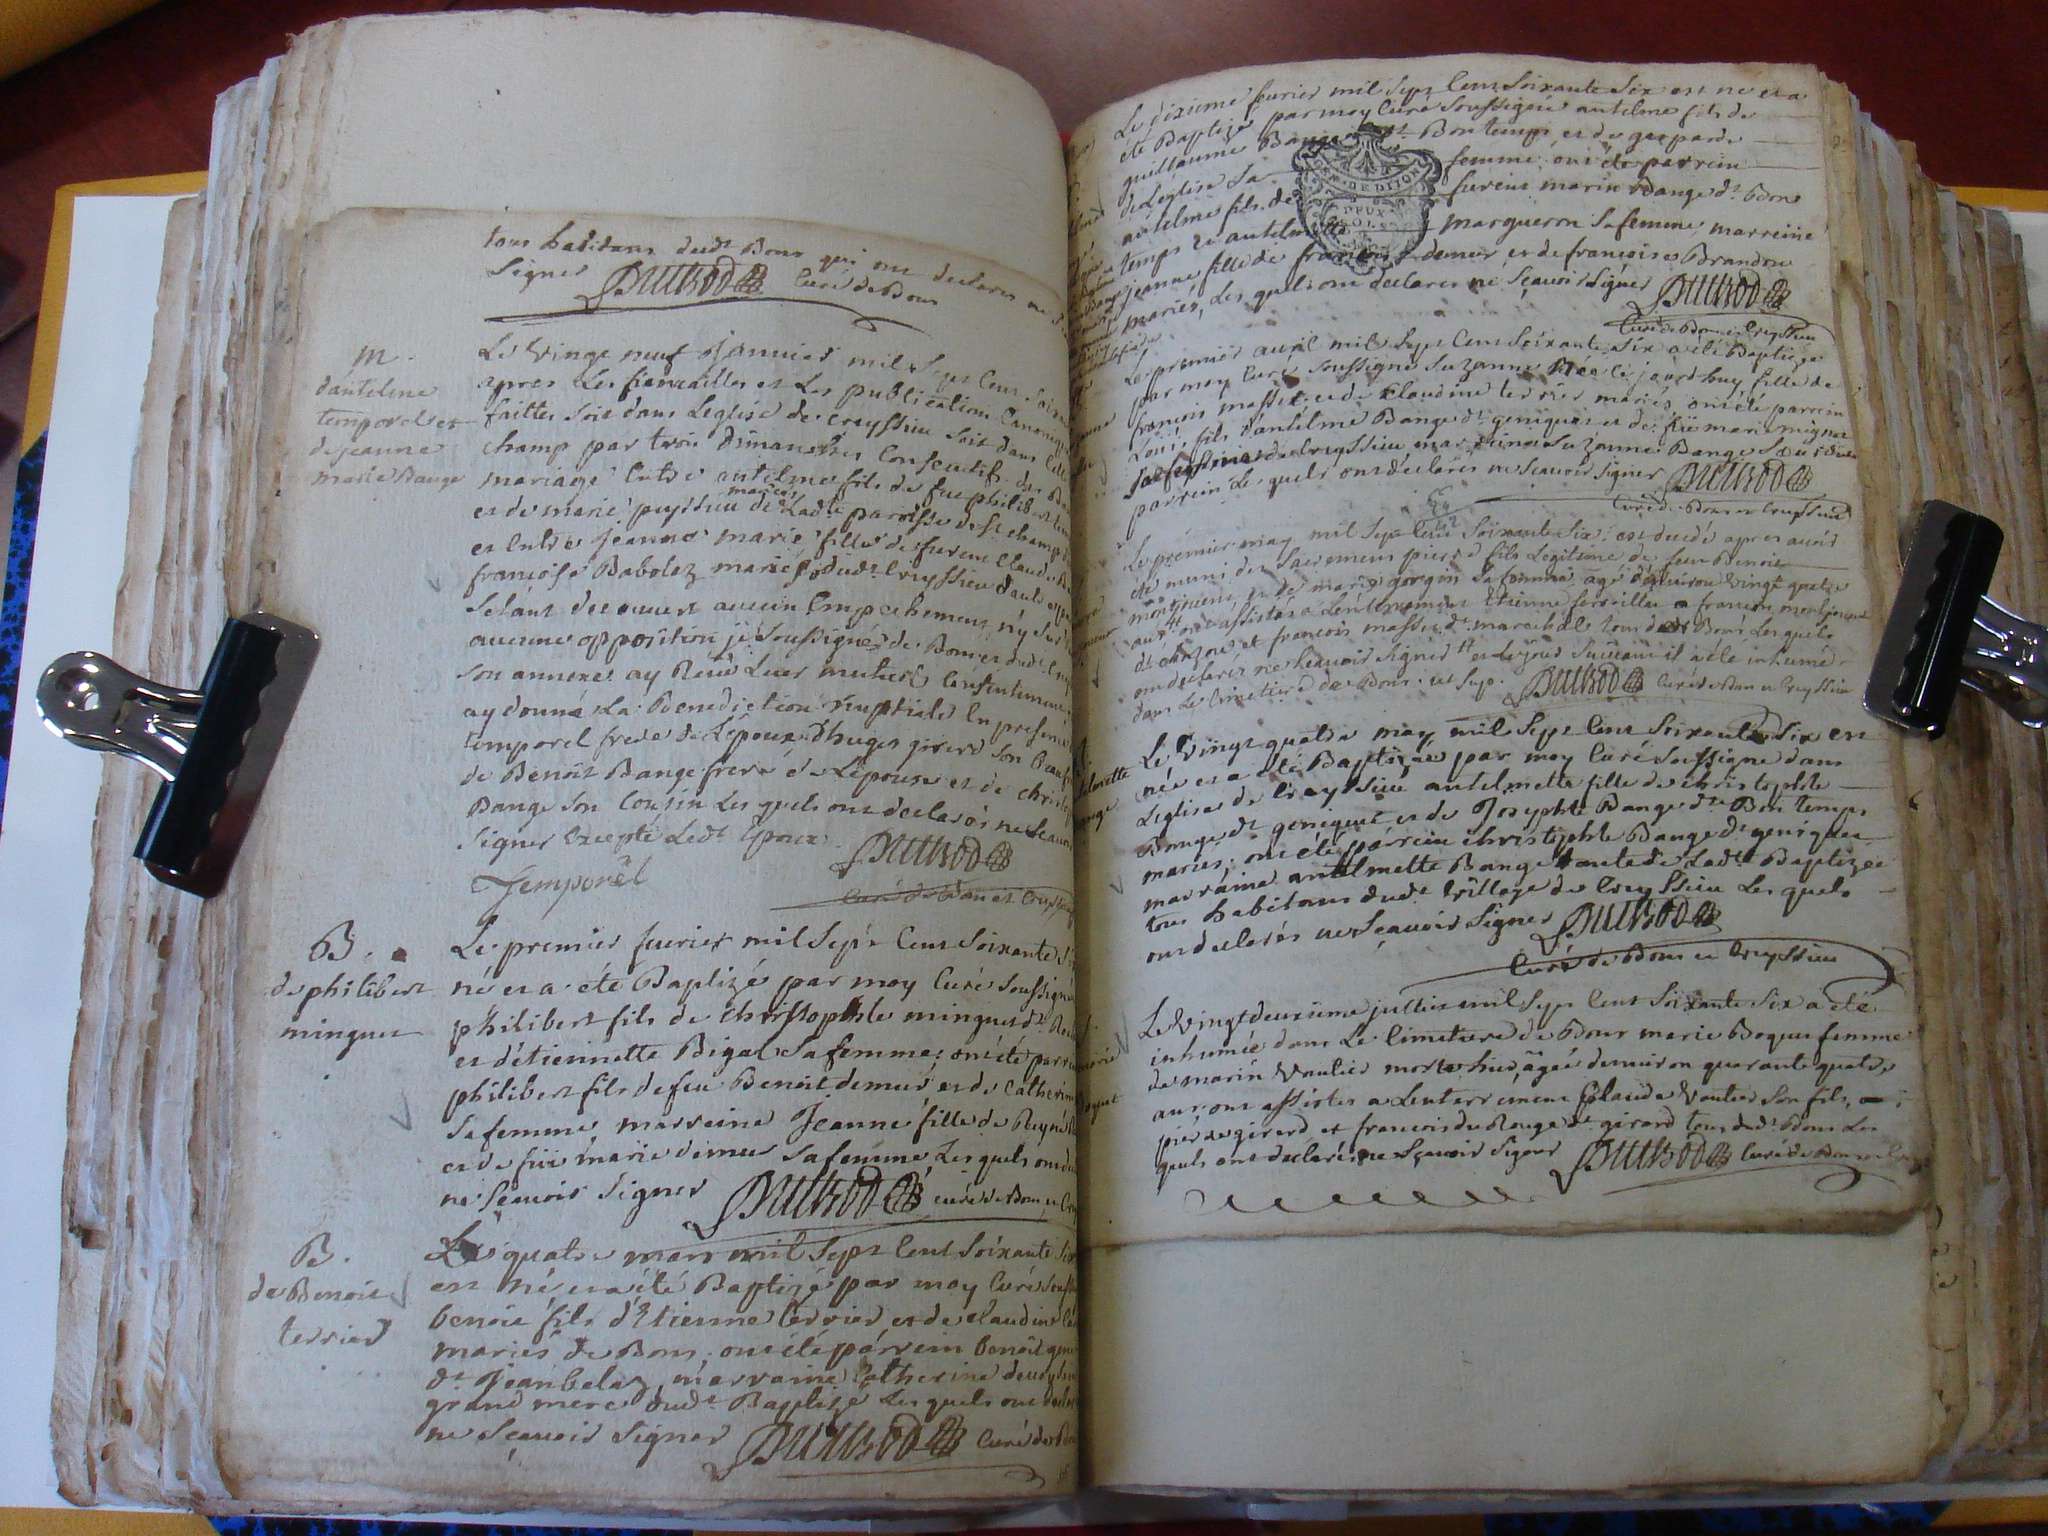 tous habitans dudt Bons qui ont declares ne
signer Dutillod Curé de Bons
m.
dantelme
temporel et
de jeanne
marie Bange
Le vingt neuf Janvier mil Sept Cent Soix
apres Les fiancailles et Les publications Canoniq
faittes soit dans Leglise de Creyssieu soit dans Celle
champ par trois dimanches Consecutifs du
mariage Entre antelme fils de fue philibert tem
et de marie puyssieu mariés de Ladte parroisse de St champ
et Entre Jeanne marie fille de furent Claude
françoise Babolaz mariés dudt Creyssieu d'aute
Setant decouvert aucun Empechement n'y
aucune opposition je Soussigné de Bons et dudt
son annexe ay Reçu Leur mutuel Consentement
ay donné La Benediction nuptiale En presence
temporel frere de L'epoux d'hugue girerd son Beauf
de Benoit Bange frere de L'epouse et de christ
Bange Son Cousin Les quels ont declarés ne Scavoir
Signer Excepté Ledt Epoux
Temporel
Curé de Bons et Creyssieu
B.
de philibert
minguet
Le premier fevrier mil Sept Cent Soixante
né et a été Baptizé par moy Curé Soussigné
philibert fils de christophle minguet dt
et d'etiennette Bigat Sa femme; ont été parrein
philibert fils de feu Benoit demeur et de Catherine
Sa femme marreine Jeanne fille de
et de fuë marie demeur Sa femme Les quels ont
ne Sçavoir Signer Curé de Bons et
B.
de Benoit
terrier
Le quatre mars mil Sept Cent Soixante Six
est né et a été Baptizé par moy Curé Souss
benoit fils d'Etienne terrier et de claudine
mariés de Bons, ont été parrein benoit
dt Jeanbelaz, marraine Catherine
grand mere dudt Baptizé Les quels ont
ne Sçavoir Signer Curé de Bons
Le dixieme fevrier mil Sept Cent Soixante Six est né et a
été Baptizé par moy Curé Soussigné antelme fils de
guillaume Bange dt Bontemps et de gasparde
de Léglise Sa femme; ont été parrein
GEN. DE DIJON
DEUX
antelme fils de furent marin Bange dt Bon
temps et antelmette margueron Sa femme, marreine
jeanne fille de françois demeur et de françoise Brandon
mariés, Les quels ont declarés ne Sçavoir Signer
Curé de Bons et Creyssieu
Le premier avril mil Sept Cent Soixante Six a été Baptizée
par moy Curé Soussigné Suzanne Née Ce jourdhuy fille de
françois massit et de Claudine terrier mariés, ont été parrein
Louis fils d'antelme Bange dt geniquet et de fuë marie mignot
Sa femme de Creyssieu marreine Suzanne Bange Soeur du
parrein Les quels ont declarés ne Scavoir Signer
Curé de Bons et Creyssieu
Le premier may mil Sept Cent Soixante Six: est decedé apres avoir
été muni des Sacremens pierre fils Legitime de feu Benoit
montjouvent et de marie gorgon Sa femme, agé d'environ vingt quatre
ans ont assistes a Lenterrement Etienne et francois montjouvent
et françois massit dt marechal tous de Bons Les quels
ont declarés ne Scavoir Signer et Le jour Suivant il a été inhumé
dans Le Cimetiere de Bons. ut Sup. Curé de Bons et Creyssieu
Le vingt quatre may mil Sept Cent Soixante Six est
née et a été Baptizée par moy Curé Soussigné dans
Leglise de Creyssieu antelmette fille de christophle
Bange dt geniquet et de Josephte Bange dte Bontemps
mariés: ont été parrein christophle Bange dt geniquet
marraine antelmette Bange tante de Ladte Baptizée
tous habitans dudt village de Creyssieu Les quels
ont declarés ne Sçavoir Signer
Curé de Bons et Creyssieu
Le vingt deuxieme juillet mil Sept Cent Soixante Six a été
inhumée dans Le Cimetiere de Bons marie Boquet femme
de marin Vautier morte hier, agée d'environ quarante quatre
ans; ont assistes a Lenterrement Claude Vautier Son fils,
pierre girerd et francois du Rouge dt girard tous dudt Bons Les
quels ont declarés ne Sçavoir Signer Curé de Bons et